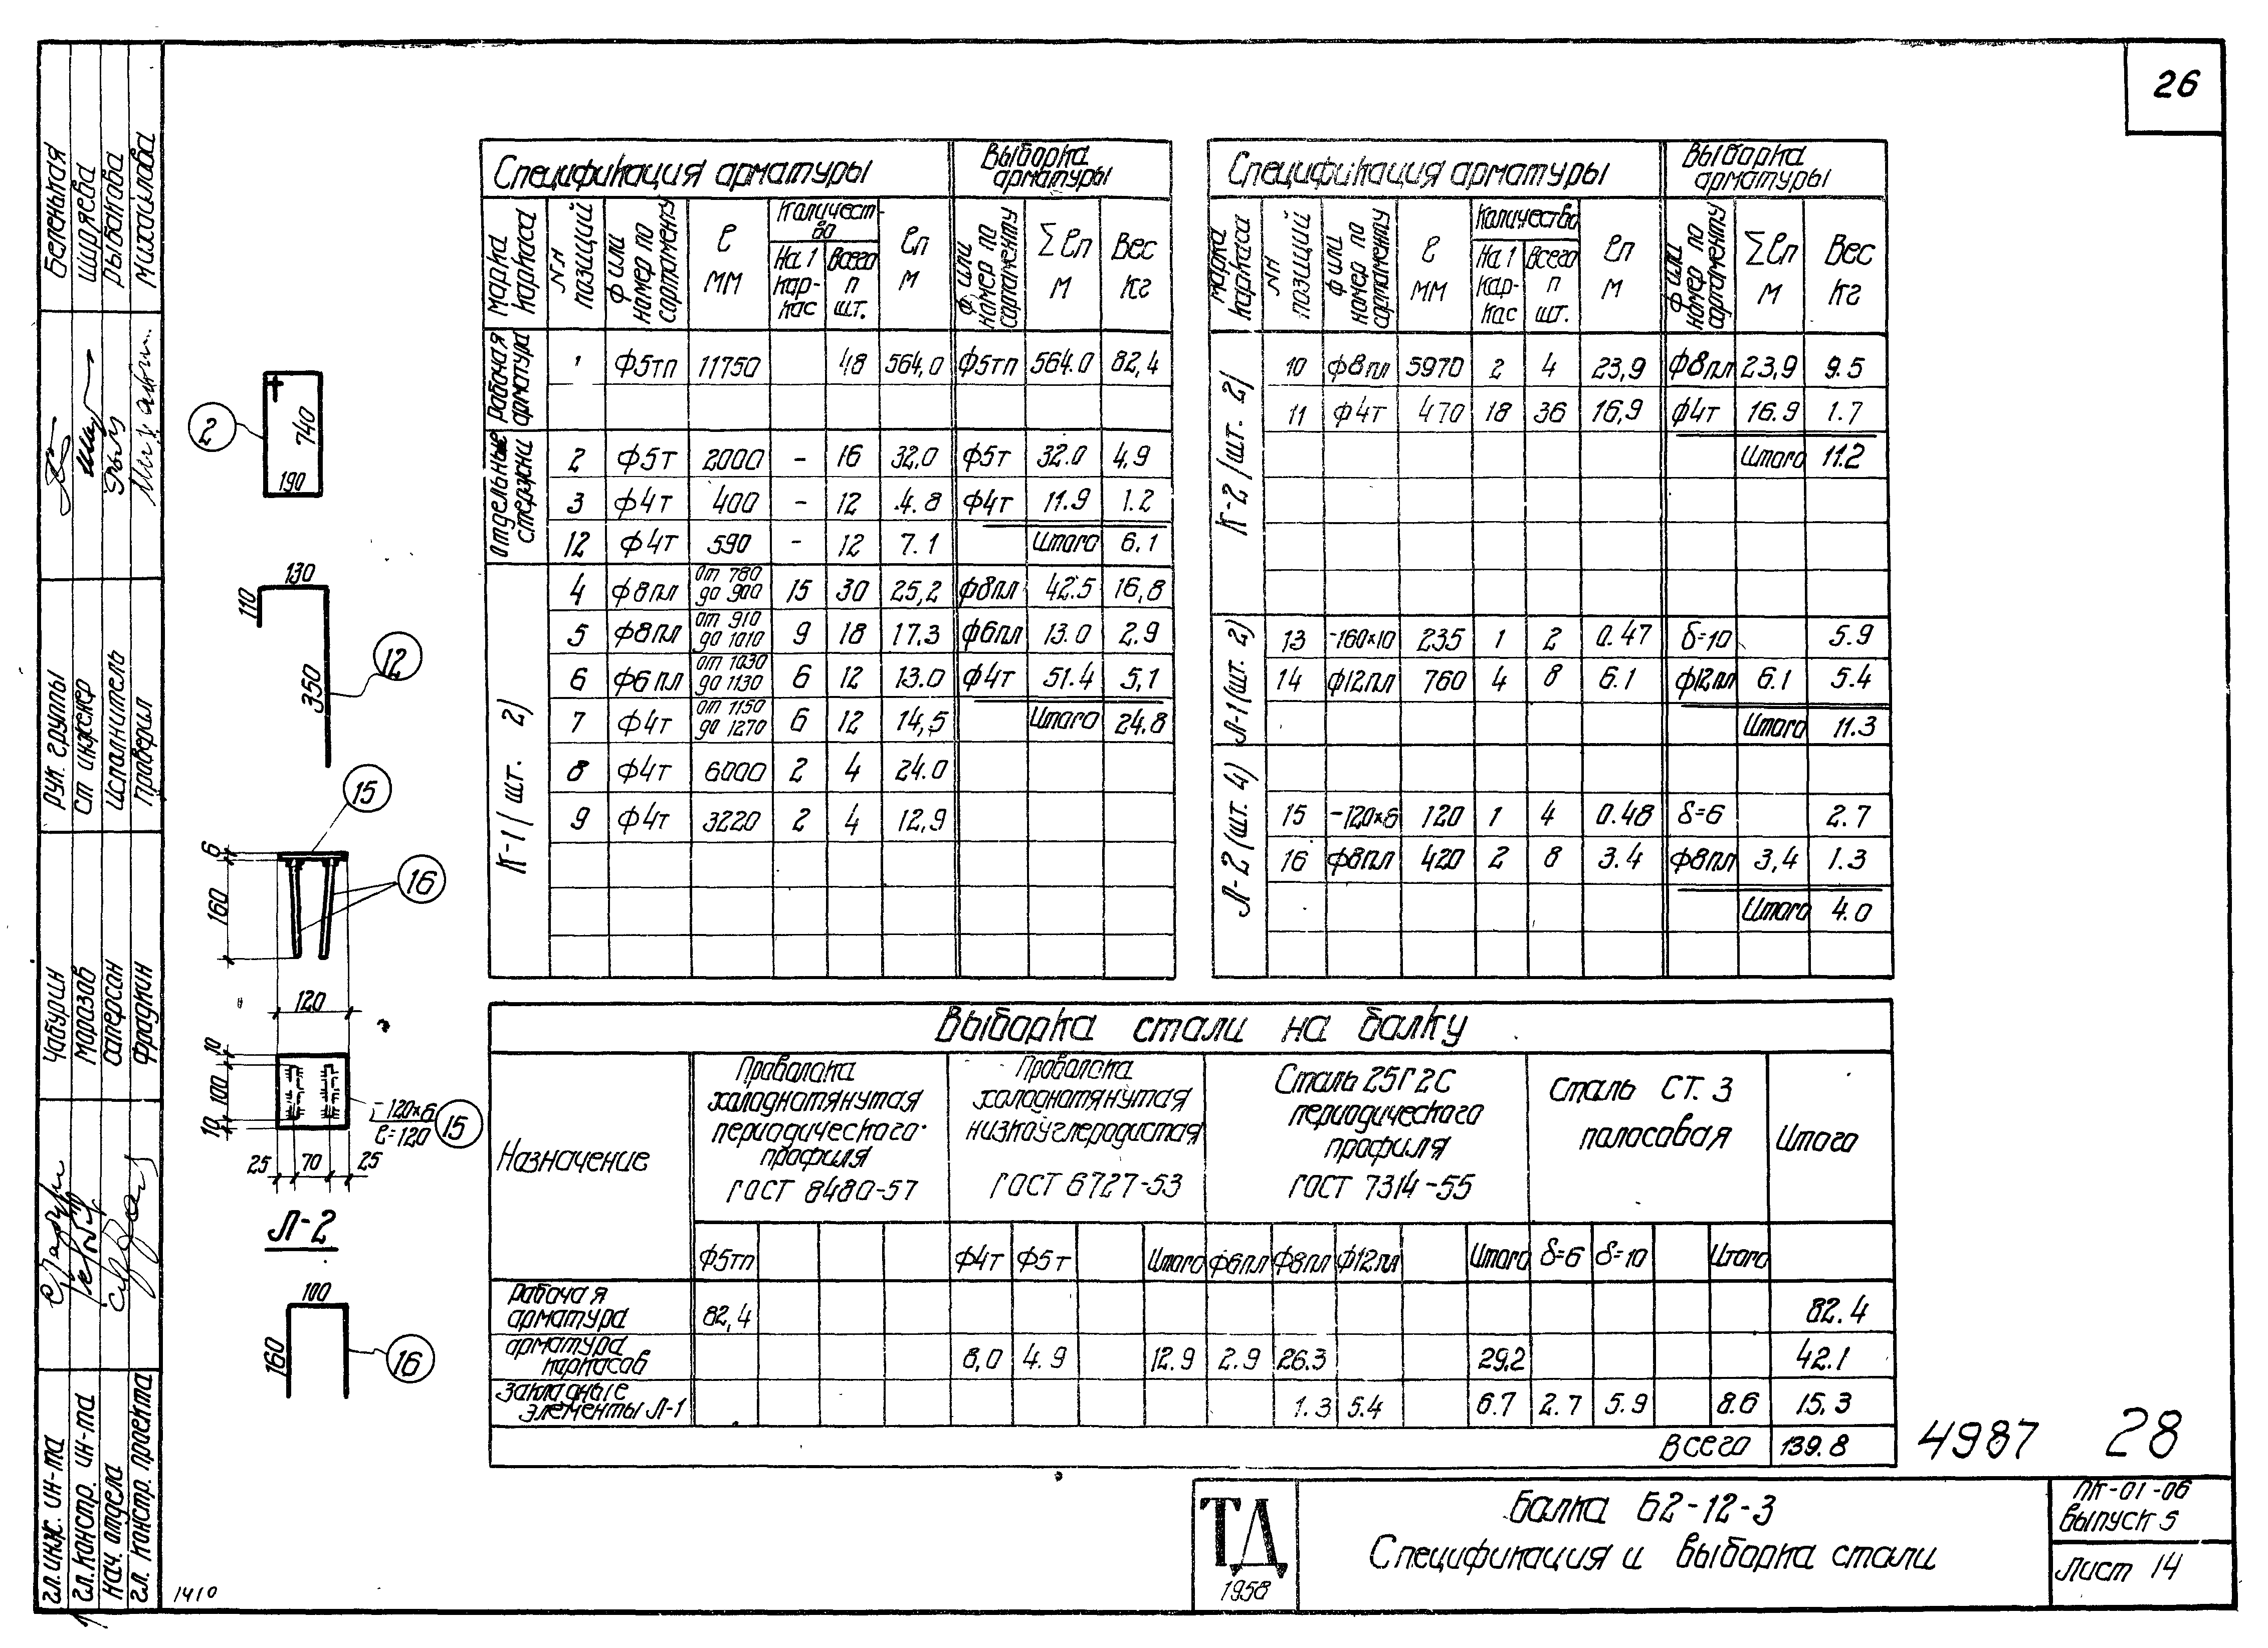 26
Спецификация арматуры
Выборка арматуры
Марка каркаса
NN позиций
ф или номер по сортаменту
ℓ мм
Количество
На 1 каркас
Всего п шт.
ℓп м
ф или номер по сортаменту
Σℓп м
Вес кг
Рабочая арматура
1 ф5тп 11750 48 564,0 ф5тп 564.0 82,4
Отдельные стержни
2 ф5т 2000 - 16 32.0 ф5т 32.0 4.9
3 ф4т 400 - 12 4.8 ф4т 11.9 1.2
12 ф4т 590 - 12 7.1 Итого 6.1
К-1 (шт. 2)
4 ф8пл от 780 до 900 15 30 25,2 ф8пл 42.5 16,8
5 ф8пл от 910 до 1010 9 18 17.3 ф6пл 13.0 2.9
6 ф6пл от 1030 до 1130 6 12 13.0 ф4т 51.4 5,1
7 ф4т от 1150 до 1270 6 12 14,5 Итого 24.8
8 ф4т 6000 2 4 24.0
9 ф4т 3220 2 4 12,9
Спецификация арматуры
Выборка арматуры
Марка каркаса
NN позиций
ф или номер по сортаменту
ℓ мм
Количество
На 1 каркас
Всего п шт.
ℓп м
ф или номер по сортаменту
Σℓп м
Вес кг
К-2 (шт. 2)
10 ф8пл 5970 2 4 23,9 ф8пл 23,9 9.5
11 ф4т 470 18 36 16,9 ф4т 16.9 1.7
Итого 11.2
Л-1 (шт. 2)
13 -160×10 235 1 2 0.47 δ=10 5.9
14 ф12пл 760 4 8 6.1 ф12пл 6.1 5.4
Итого 11.3
Л-2 (шт. 4)
15 -120×6 120 1 4 0.48 δ=6 2.7
16 ф8пл 420 2 8 3.4 ф8пл 3,4 1.3
Итого 4.0
2
740
190
130
110
350
12
15
6
160
16
120
10
100
10
-120×6
ℓ=120
15
25 70 25
Л-2
100
160
16
Выборка стали на балку
Назначение
Проволока холоднотянутая периодического профиля ГОСТ 8480-57
Проволока холоднотянутая низкоуглеродистая ГОСТ 6727-53
Сталь 25Г2С периодического профиля ГОСТ 7314-55
Сталь Ст. 3 полосовая
Итого
ф5тп ф4т ф5т Итого ф6пл ф8пл ф12пл Итого δ=6 δ=10 Итого
Рабочая арматура 82,4 82.4
арматура каркасов 8,0 4.9 12.9 2.9 26.3 29.2 42.1
Закладные элементы Л-1 1.3 5.4 6.7 2.7 5.9 8.6 15.3
Всего 139.8
4987 28
ТД
1958
Балка Б2-12-3
Спецификация и выборка стали
ПК-01-06
выпуск 5
Лист 14
1410
Беленькая
Ширяева
Рыбакова
Михайлова
Рук. группы
Ст инженер
Исполнитель
Проверил
Чабурин
Морозов
Саперсон
Фрадкин
Гл. инж. ин-та
Гл. констр. ин-та
Нач. отдела
Гл. констр. проекта